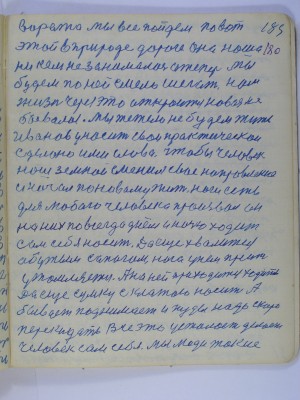 ворота мы все пойдем по вот 185
этой в природе дороге она наша 180
ни кем не занималась а теперь мы
будем по ней смело шегать, нам
жизнь через это откроить новая не
бывалая. Мы тепло не будем жить
Иванов уносит свою практическою
сделано ими слова. чтобы человек
наш земной сменил свое направление
и начал по новому жить на
для любого человека произвол он
на них по всегда днём и ночю ходит
сам себя носит. Да еще в валянку
обутым сапогом, нога у нея прита
утомляится. А на ней приходится ходить
да еще сумку с клатою носить А
бывает поднимает и пуды надо скоро
перекидать Все это усталость делаит
человек сам себя. мы люди такие